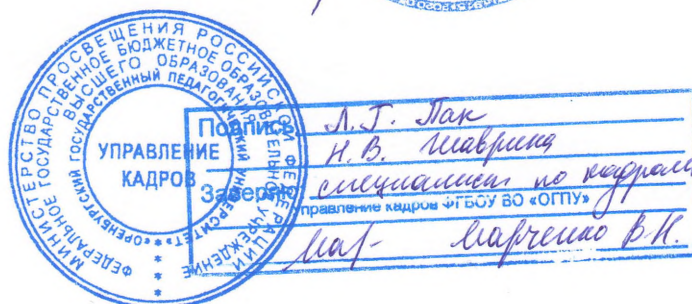 МИНИСТЕРСТВО ПРОСВЕЩЕНИЯ РОССИЙСКОЙ ФЕДЕРАЦИИ
ФЕДЕРАЛЬНОЕ ГОСУДАРСТВЕННОЕ БЮДЖЕТНОЕ ОБРАЗОВАТЕЛЬНОЕ УЧРЕЖДЕНИЕ
ВЫСШЕГО ОБРАЗОВАНИЯ
«ОРЕНБУРГСКИЙ ГОСУДАРСТВЕННЫЙ ПЕДАГОГИЧЕСКИЙ УНИВЕРСИТЕТ»
УПРАВЛЕНИЕ
КАДРОВ
Подпись Л.Г. Пак
Н.В. Шаврина
Заверяю специалист по кадрам
Управление кадров ФГБОУ ВО «ОГПУ»
Марченко В.Н.